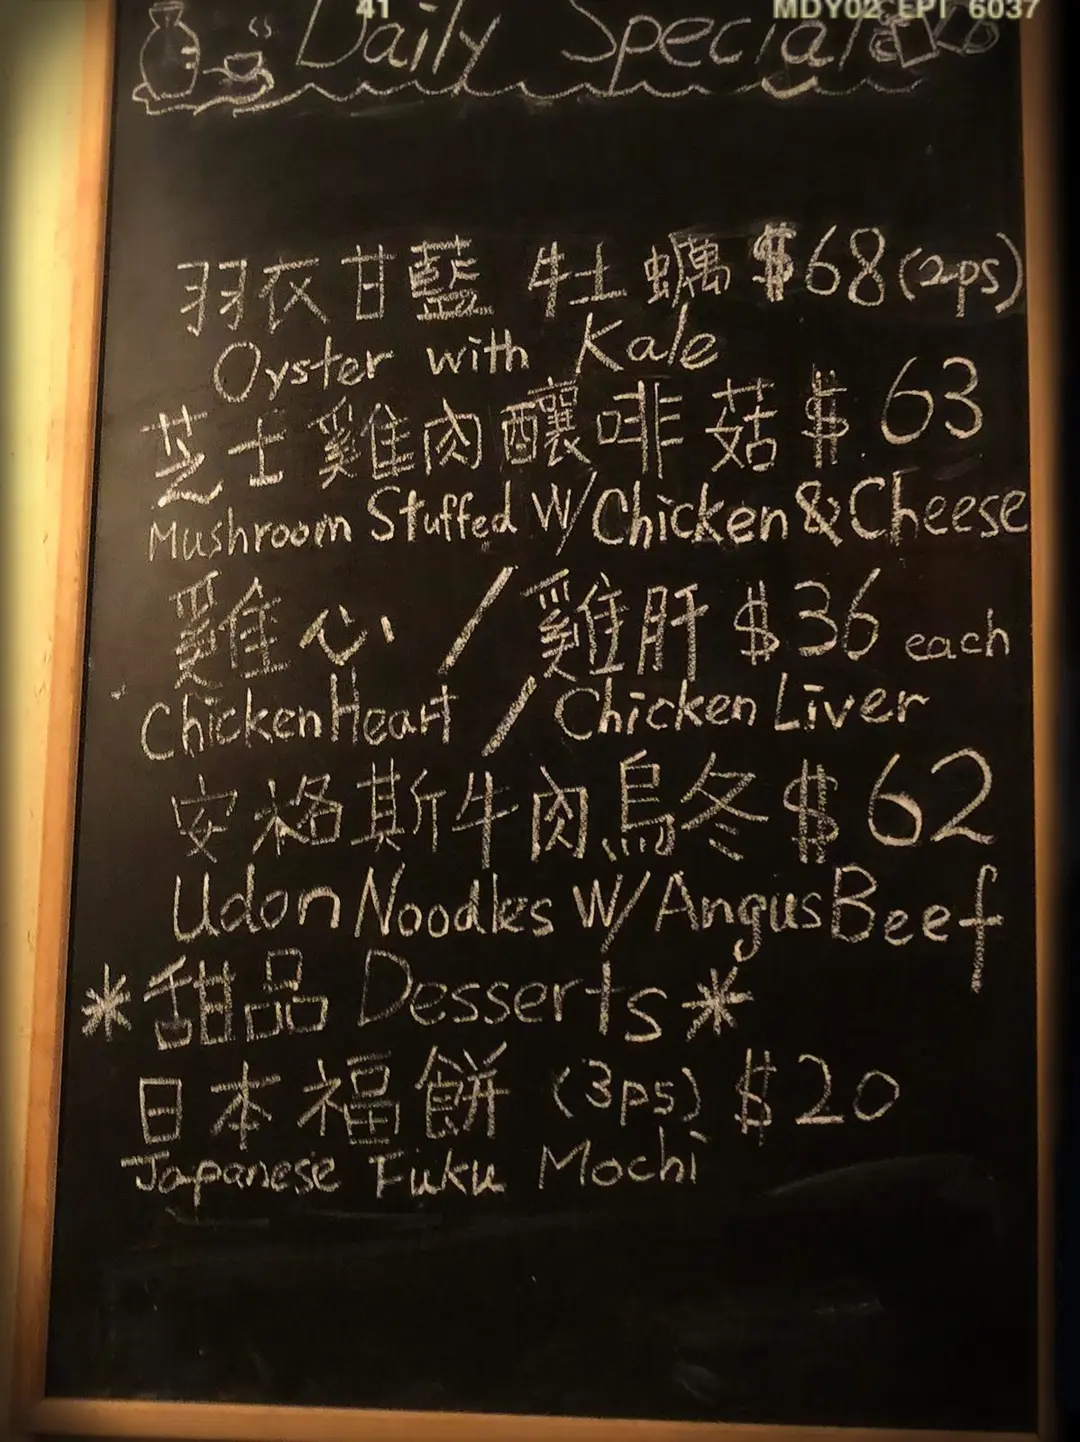 41 MDY02 EPI 6037
Daily Special
羽衣甘藍 牡蠣 $68 (2ps)
Oyster with Kale
芝士雞肉釀啡菇 $63
Mushroom Stuffed W/ Chicken & Cheese
雞心 / 雞肝 $36 each
Chicken Heart / Chicken Liver
安格斯牛肉烏冬 $62
Udon Noodles W/ Angus Beef
*甜品 Desserts*
日本福餅 (3ps) $20
Japanese Fuku Mochi